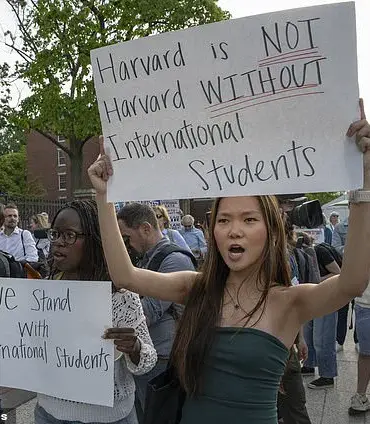 Harvard is NOT
Harvard WITHOUT
International
Students
We Stand
With
International Students